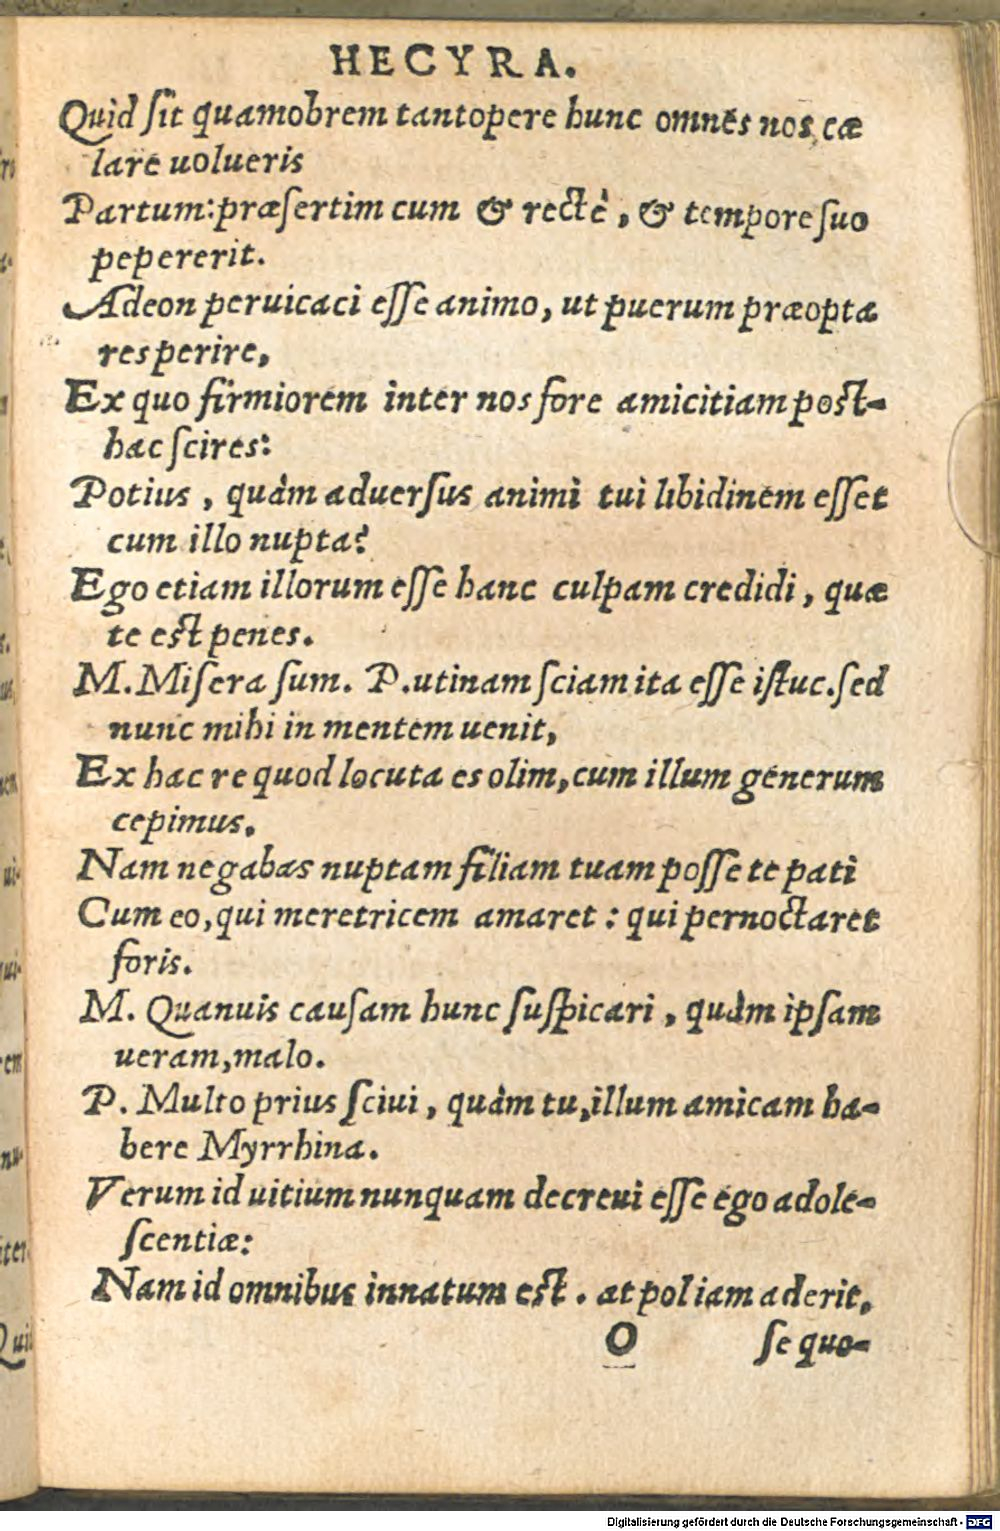 HECYRA.
Quid ſit quamobrem tantopere hunc omnes nos cæ
lare uolueris
Partum: præſertim cum & rectè, & tempore ſuo
pepererit.
Adeon peruicaci eſſe animo, ut puerum præopta
res perire,
Ex quo firmiorem inter nos fore amicitiam poſt-
hac ſcires:
Potius, quàm aduerſus animi tui libidinem eſſet
cum illo nupta?
Ego etiam illorum eſſe hanc culpam credidi, quæ
te eſt penes.
M. Miſera ſum. P. utinam ſciam ita eſſe iſtuc. ſed
nunc mihi in mentem uenit,
Ex hac re quod locuta es olim, cum illum generum
cepimus.
Nam negabas nuptam filiam tuam poſſe te pati
Cum eo, qui meretricem amaret: qui pernoctaret
foris.
M. Quanuis cauſam hunc ſuſpicari, quàm ipſam
ueram, malo.
P. Multo prius ſciui, quàm tu, illum amicam ha-
bere Myrrhina.
Verum id uitium nunquam decreui eſſe ego adole-
ſcentiæ:
Nam id omnibus innatum eſt. at pol iam aderit,
O ſe quo-
Digitalisierung gefördert durch die Deutsche Forschungsgemeinschaft - DFG